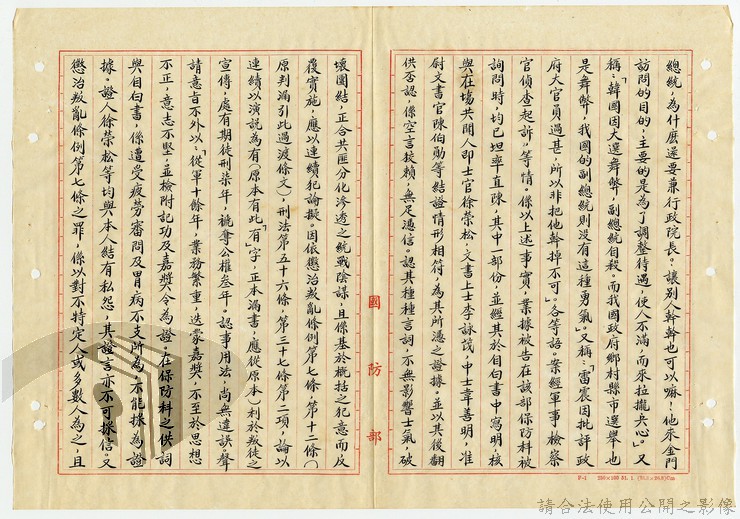 總統，為什麼還要兼行政院長。讓別人幹幹也可以嘛！他來金門
訪問的目的，主要的是為了調整待遇，使人不滿，而來拉攏兵心」。又
稱：「韓國因大選舞弊，副總統自殺。而我國政府鄉村縣市選舉，也
是舞弊，我國的副總統則沒有這種勇氣」。又稱：「雷震因批評政
府大官員過甚，所以非把他幹掉不可」。各等語。案經軍事檢察
官偵查起訴」等情。係以上述事實，業據被告在該部保防科被
詢問時，均已坦率直陳，其中一部份，並經其於自白書中寫明，核
與在場共聞人即士官徐榮松、文書上士李詠筏，中士韋善明，准
尉文書官陳伯勛等結證情形相符，為其所憑之證據。並以其後翻
供否認，係空言狡賴，無足憑信。認其種種言詞，亦無影響士氣，破
壞團結，正合共匪分化滲透之統戰陰謀，且係基於概括之犯意而反
覆實施，應以連續犯論擬。因依懲治叛亂條例第七條、第十二條（
原判漏引此過渡條文），刑法第五十六條，第三十七條第二項，論以
連續以演說為有（原本有此「有」字，正本漏書，應從原本）利於叛徒之
宣傳，處有期徒刑柒年，褫奪公權叁年。認事用法，尚無違誤。聲
請意旨不外以：「從軍十餘年，業務繁重，迭蒙嘉獎，不至於思想
不正，意志不堅，並檢附記功及嘉獎令為證，在保防科之供詞
與自白書，係遭受疲勞審問及胃病不支所為，不能採為證
據。證人徐榮松等均與本人結有私怨，其證言亦不可採信。又
懲治叛亂條例第七條之罪，係以對不特定人或多數人為之，且
國防部
F-1
請合法使用公開之影像